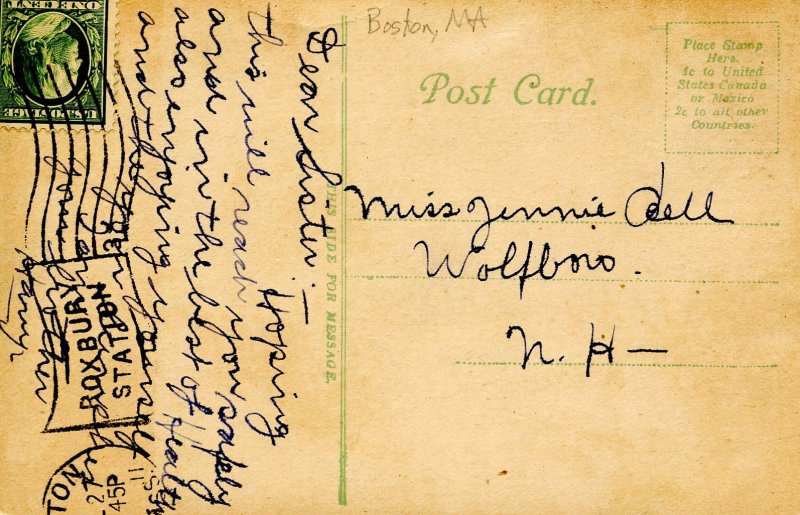 Boston, MA
Post Card.
Place Stamp
Here.
1c to United
States Canada
or Mexico
2c to all other
Countries.
THIS SIDE FOR MESSAGE.
Dear Sister:—
Hoping
this will reach you safely
and in the best of Health
also enjoying yourself
and
your
your Brother
Miss Jennie Bell
Wolfboro.
N. H—
ONE CENT
U.S. POSTAGE
ROXBURY
STATION
TON
27
45P
11
SS.